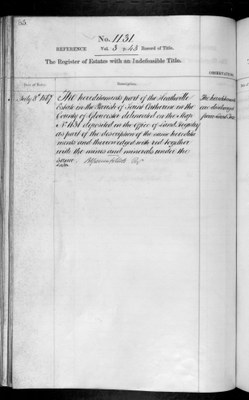 55.
No. 1131
REFERENCE Vol. 3 p. 45 Record of Title.
The Register of Estates with an Indefeasible Title.
Date of Entry. Description. OBSERVATIONS.
July 8th 1867 The hereditaments part of the Heathville The hereditaments
Estate in the Parish of Saint Catherine in the are discharged
County of Gloucester delineated on the Map from Land Tax
No. 1131 deposited in the Office of Land Registry
as part of the description of the same heredita
ments and therein edged with red together
with the mines and minerals under the
same